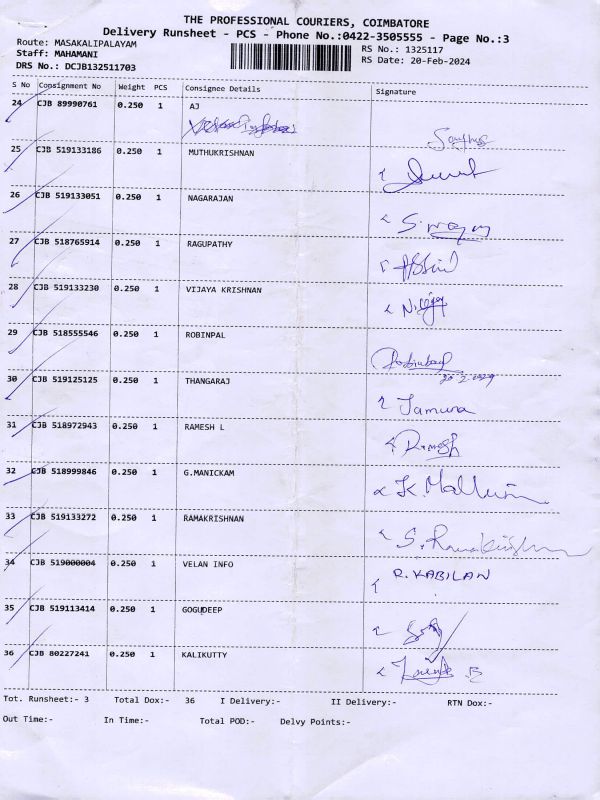 THE PROFESSIONAL COURIERS, COIMBATORE
Delivery Runsheet - PCS - Phone No.:0422-3505555 - Page No.:3
Route: MASAKALIPALAYAM RS No.: 1325117
Staff: MAHAMANI RS Date: 20-Feb-2024
DRS No.: DCJB132511703
S No Consignment No Weight PCS Consignee Details Signature
24 CJB 89990761 0.250 1 AJ
25 CJB 519133186 0.250 1 MUTHUKRISHNAN
26 CJB 519133051 0.250 1 NAGARAJAN
27 CJB 518765914 0.250 1 RAGUPATHY
28 CJB 519133230 0.250 1 VIJAYA KRISHNAN
29 CJB 518555546 0.250 1 ROBINPAL
20-2-2024
30 CJB 519125125 0.250 1 THANGARAJ
Jamuna
31 CJB 518972943 0.250 1 RAMESH L
Ramesh
32 CJB 518999846 0.250 1 G.MANICKAM
33 CJB 519133272 0.250 1 RAMAKRISHNAN
34 CJB 519000004 0.250 1 VELAN INFO R.KABILAN
35 CJB 519113414 0.250 1 GOGUDEEP
36 CJB 80227241 0.250 1 KALIKUTTY
Tot. Runsheet:- 3 Total Dox:- 36 I Delivery:- II Delivery:- RTN Dox:-
Out Time:- In Time:- Total POD:- Delvy Points:-